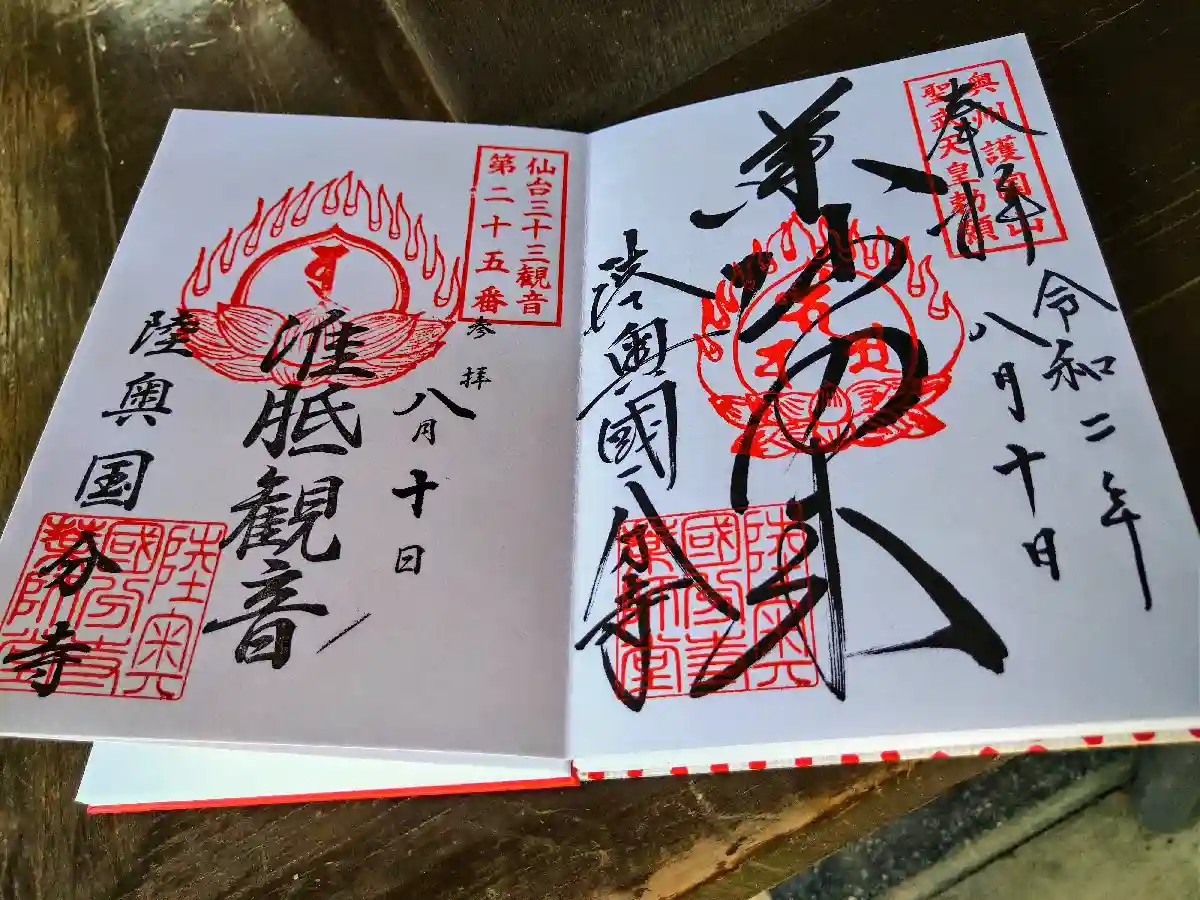 奥州護國山
聖武天皇勅願
奉拝
令和二年
八月十日
薬師如来
陸奥國分寺
陸奥
國分寺
薬師堂
仙台三十三観音
第二十五番
参拝
八月十日
准胝観音
陸奥国分寺
陸奥
國分寺
薬師堂